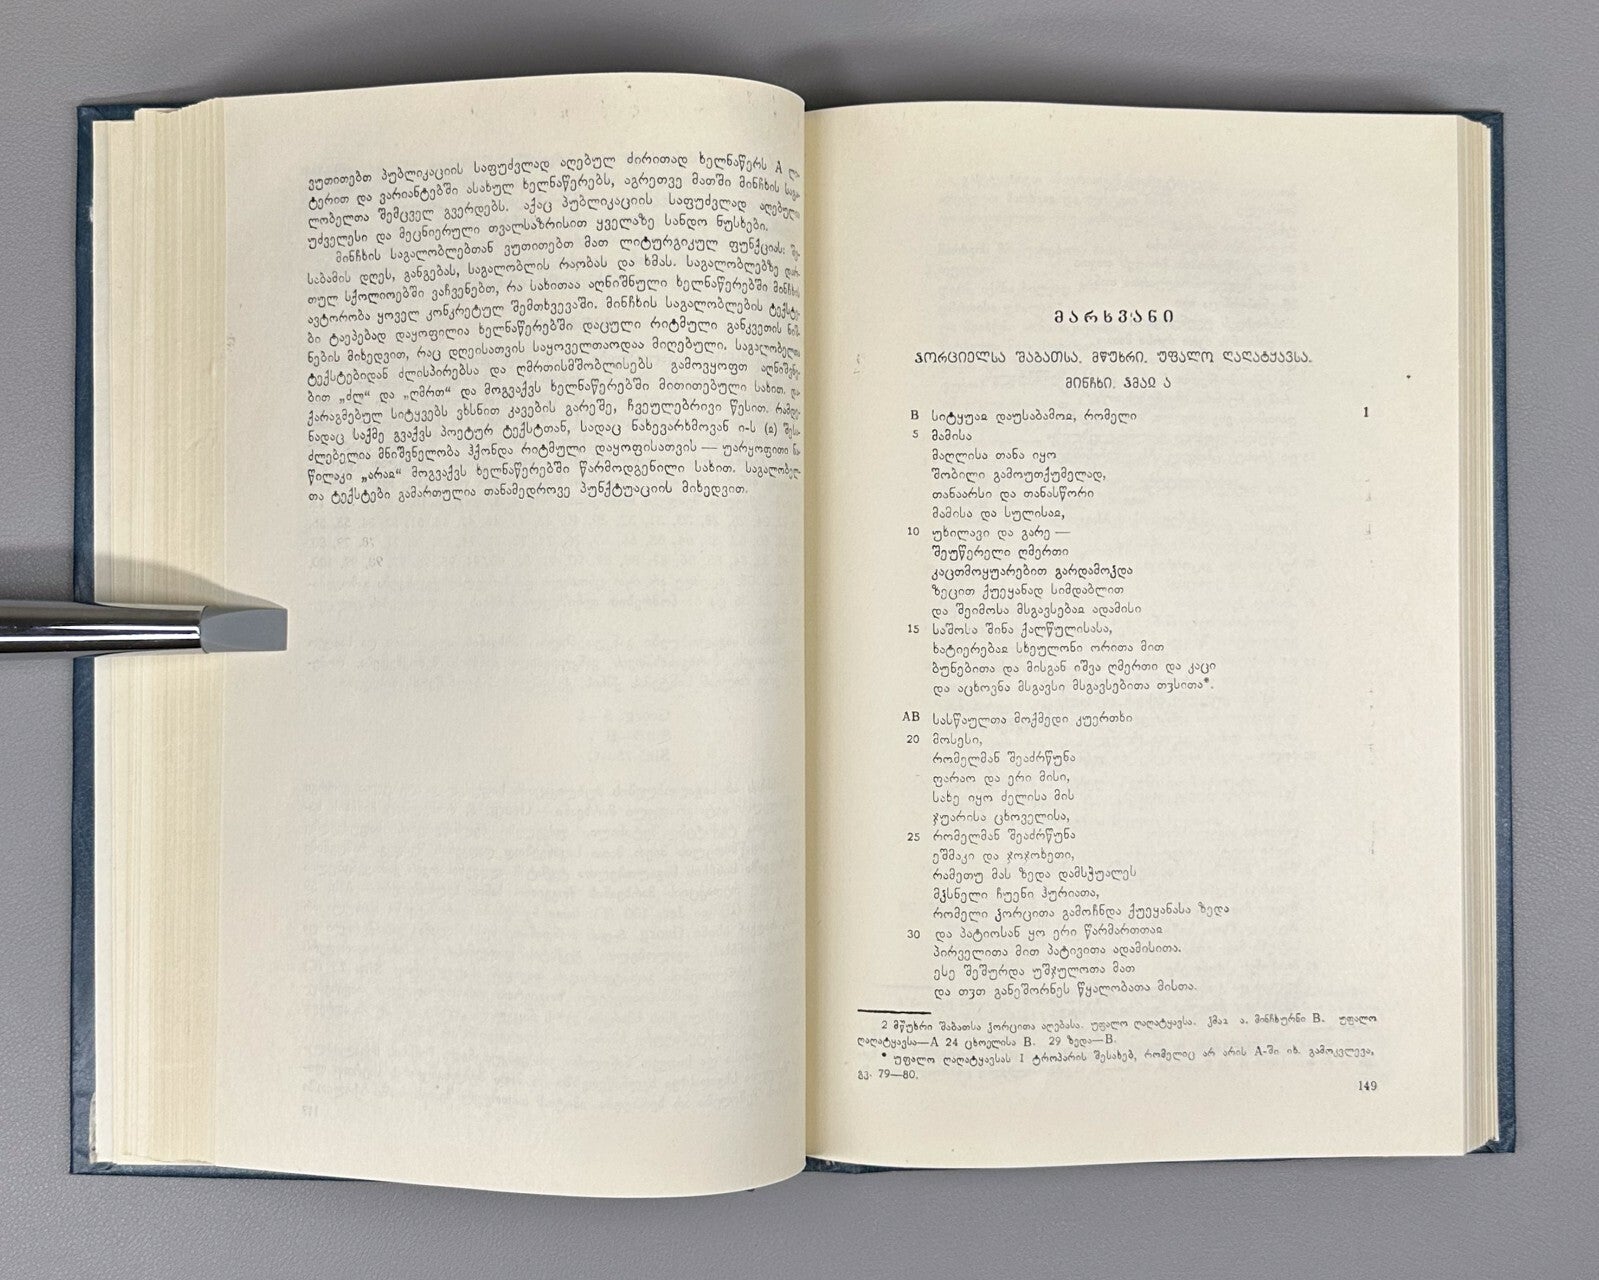 ვუთითებთ პუბლიკაციის საფუძვლად აღებულ ძირითად ხელნაწერს A
ტერით და ვარიანტებში ასახულ ხელნაწერებს, აგრეთვე მათში მინჩხის
ლობელთა შემცველ გვერდებს. აქაც პუბლიკაციის საფუძვლად აღებულია
უძველესი და მეცნიერული თვალსაზრისით ყველაზე სანდო ნუსხები.
მინჩხის საგალობლებთან ვუთითებთ მათ ლიტურგიკულ ფუნქციას: შე-
საბამის დღეს, განგებას, საგალობლის რაობას და ხმას. საგალობლებზე დარ-
თულ სქოლიოებში ვაჩვენებთ, რა სახითაა აღნიშნული ხელნაწერებში მინჩხის
ავტორობა ყოველ კონკრეტულ შემთხვევაში. მინჩხის საგალობლების ტექსტე-
ბი ტაეპებად დაყოფილია ხელნაწერებში დაცული რიტმული განკვეთის ნიშ-
ნების მიხედვით, რაც დღეისათვის საყოველთაოდაა მიღებული. საგალობელთა
ტექსტებიდან ძლისპირებსა და ღმრთისმშობლისებს გამოვყოფთ აღნიშვნე-
ბით „ძლ“ და „ღმრთ“ და მოგვაქვს ხელნაწერებში მითითებული სახით. და-
ქარაგმებულ სიტყვებს ვხსნით კავების გარეშე, ჩვეულებრივი წესით. რამდე-
ნადაც საქმე გვაქვს პოეტურ ტექსტთან, სადაც ნახევარხმოვან ი-ს (ჲ) შესა-
ძლებელია მნიშვნელობა ჰქონდა რიტმული დაყოფისათვის — უარყოფითი ნა-
წილაკი „არაჲ“ მოგვაქვს ხელნაწერებში წარმოდგენილი სახით. საგალობელ-
თა ტექსტები გამართულია თანამედროვე პუნქტუაციის მიხედვით.
მარხვანი
ჴორციელსა შაბათსა. მწუხრი. უფალო ღაღატყავსა.
მინჩხი. ჴმაჲ ა
B სიტყუაჲ დაუსაბამოჲ, რომელი 1
5 მამისა
მაღლისა თანა იყო
შობილი გამოუთქუმელად,
თანაარსი და თანასწორი
მამისა და სულისაჲ,
10 უხილავი და გარე —
შეუწერელი ღმერთი
კაცთმოყუარებით გარდამოჴდა
ზეცით ქუეყანად სიმდაბლით
და შეიმოსა მსგავსებაჲ ადამისი
15 საშოსა შინა ქალწულისასა,
ხატიერებაჲ სხეულონი ორითა მით
ბუნებითა და მისგან იშვა ღმერთი და კაცი
და აცხოვნა მსგავსი მსგავსებითა თჳსითა*.
AB სასწაულთა მოქმედი კუერთხი
20 მოსესი,
რომელმან შეაძრწუნა
ფარაო და ერი მისი,
სახე იყო ძელისა მის
ჯუარისა ცხოველისა,
25 რომელმან შეაძრწუნა
ეშმაკი და ჯოჯოხეთი,
რამეთუ მას ზედა დამსჭუალეს
მჴსნელი ჩუენი ჰურიათა,
რომელი ჴორცითა გამოჩნდა ქუეყანასა ზედა
30 და პატიოსან ყო ერი წარმართთაჲ
პირველითა მით პატივითა ადამისითა.
ესე შეშურდა უშჯულოთა მათ
და თჳთ განეშორნეს წყალობათა მისთა.
2 მწუხრი შაბათსა ჴორცითა აღებასა. უფალო ღაღატყავსა. ჴმაჲ ა. მინჩხურნი B. უფალო
ღაღატყავსა—A 24 ცხოელისა B. 29 ზედა—B.
* უფალო ღაღატყავსას 1 ტროპარის შესახებ, რომელიც არ არის A-ში იხ. გამოკვლევა,
გვ. 79—80.
149